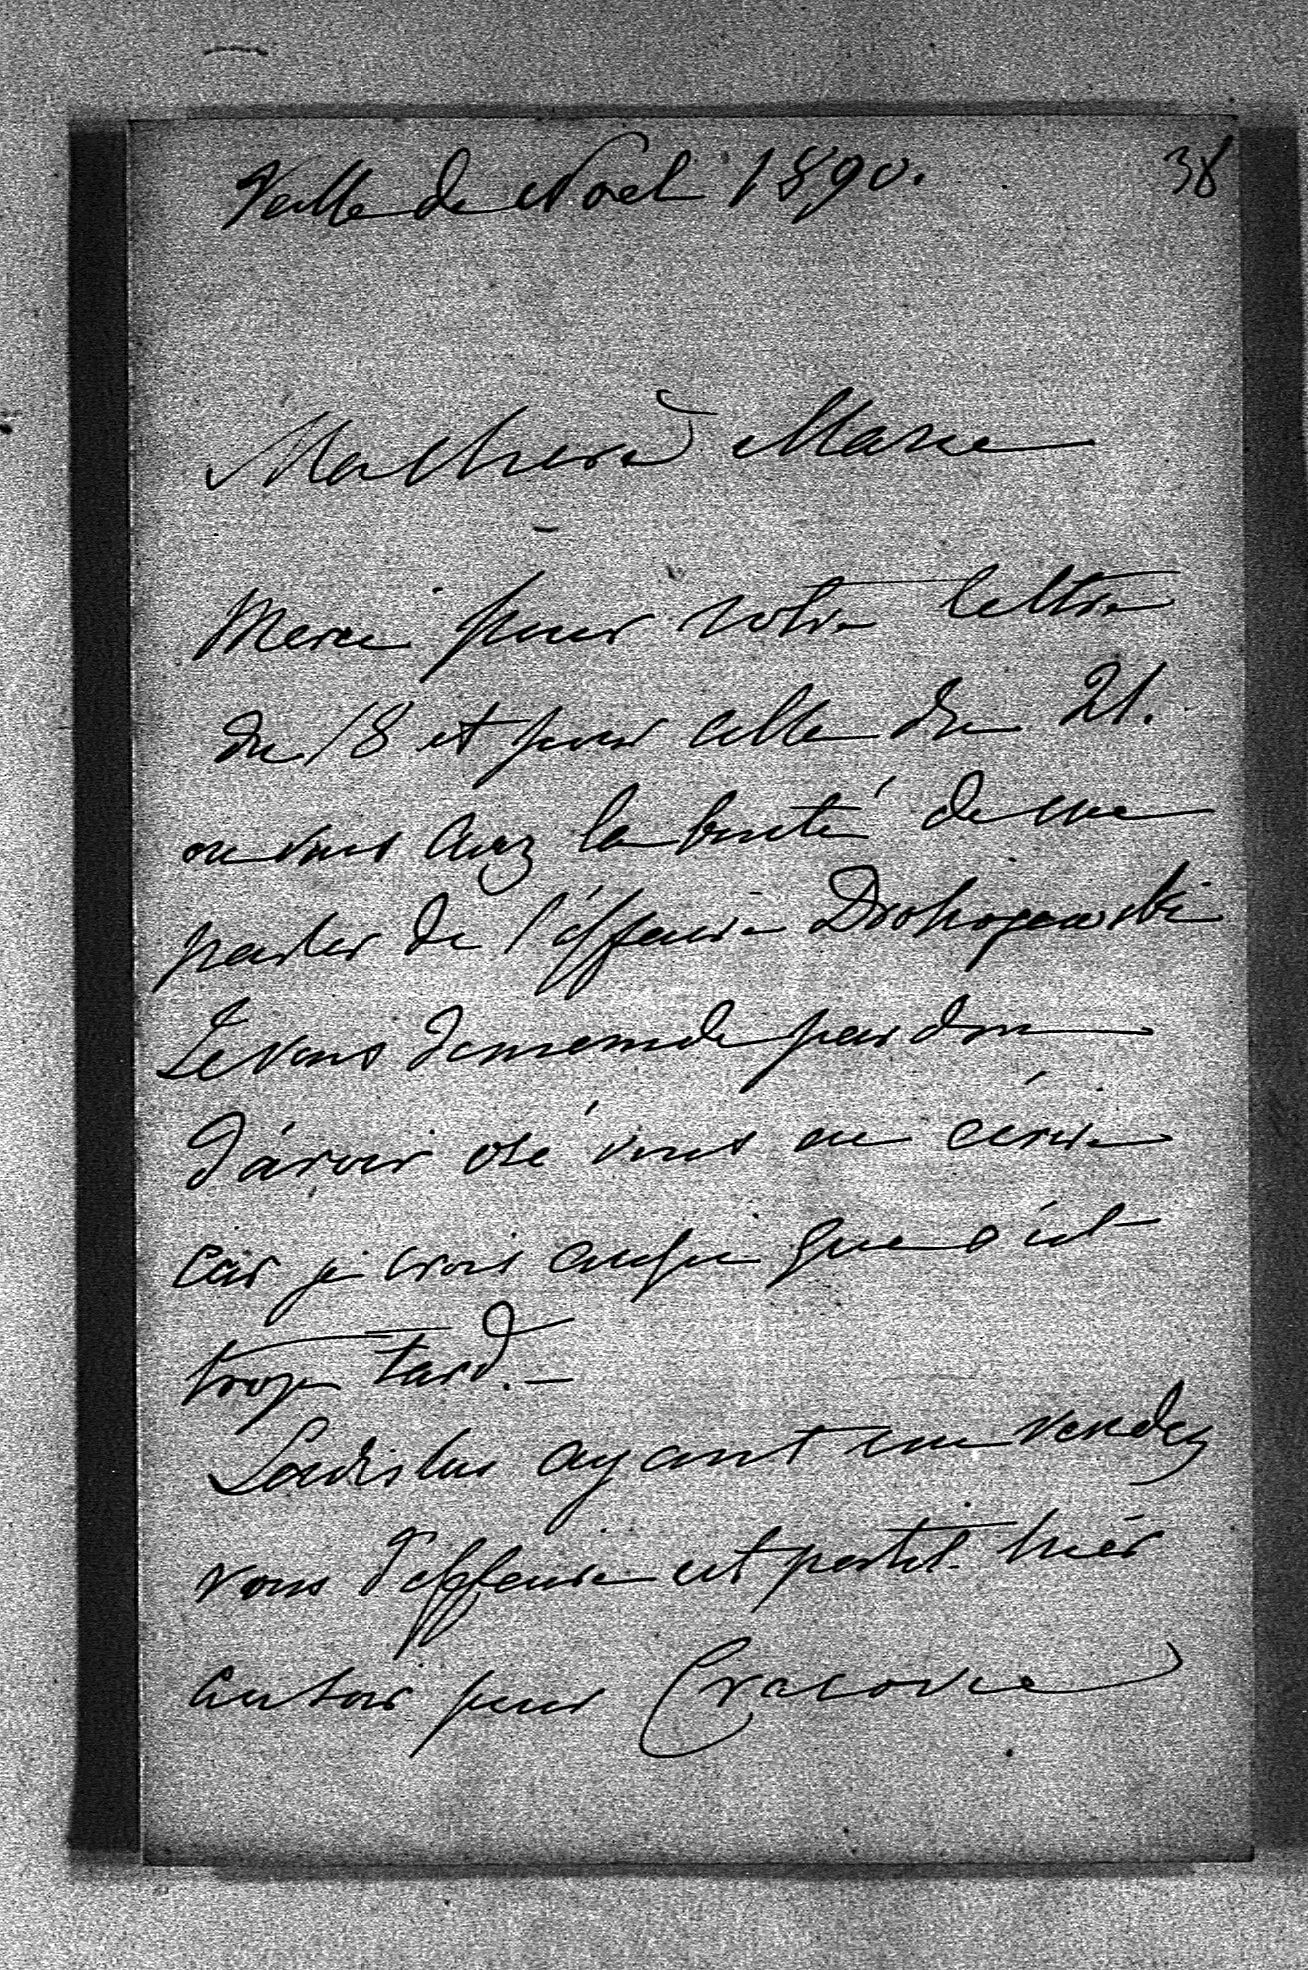 Veille de Noel 1890. 38
Ma Chère Marie
Merci pour votre lettre
du 18 et pour celle du 21.
ou vous avez la bonté de me
parler de l'affaire Drohojewski
Je vous demande pardon
d'avoir osé vous en écrire
car je crois aussi que c'est
trop tard. –
Ladislas ayant un rendez
vous d'affaire est partit hier
au soir pour Cracovie